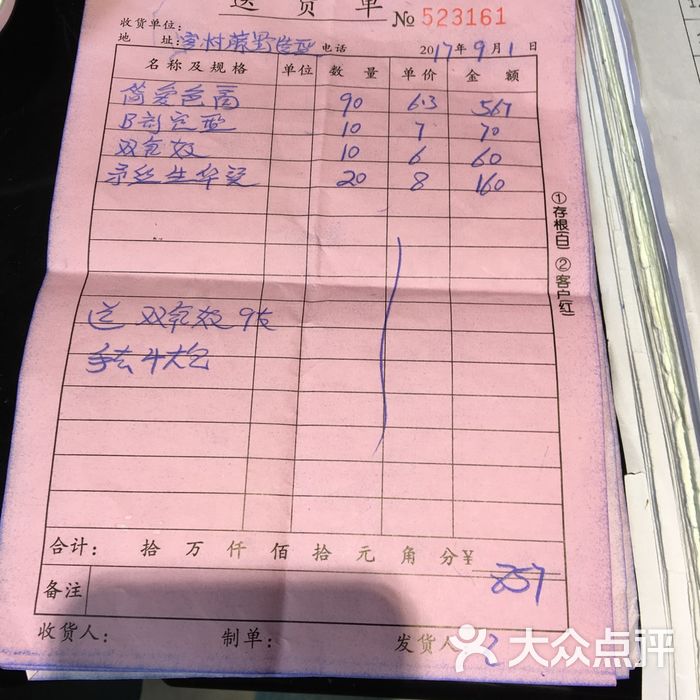 送货单
№ 523161
收货单位:
地 址: 客村藤野造型 电话 2017年9月1日
名称及规格 单位 数 量 单价 金 额
简爱色膏 90 6.3 567
10 7 70
双氧奶 10 6 60
20 8 160
①存根(白) ②客户(红)
送 双氧奶 9支
4大包
合计: 拾 万 仟 佰 拾 元 角 分 ¥ 857
备注
收货人: 制单: 发货人:
大众点评